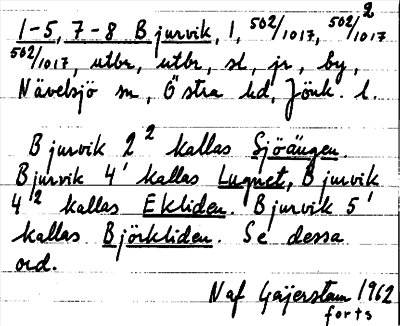 1-5, 7-8 Bjurvik, 1, 502/1017, 502/1017²
502/1017, utbr, utbr, st, jr, by,
Nävelsjö sn, Östra hd, Jönk. l.
Bjurvik 2² kallas Sjöängen.
Bjurvik 4¹ kallas Lugnet, Bjurvik
4² kallas Ekliden. Bjurvik 5¹
kallas Björkliden. Se dessa
ord.
Naf Gajerstam 1962
forts